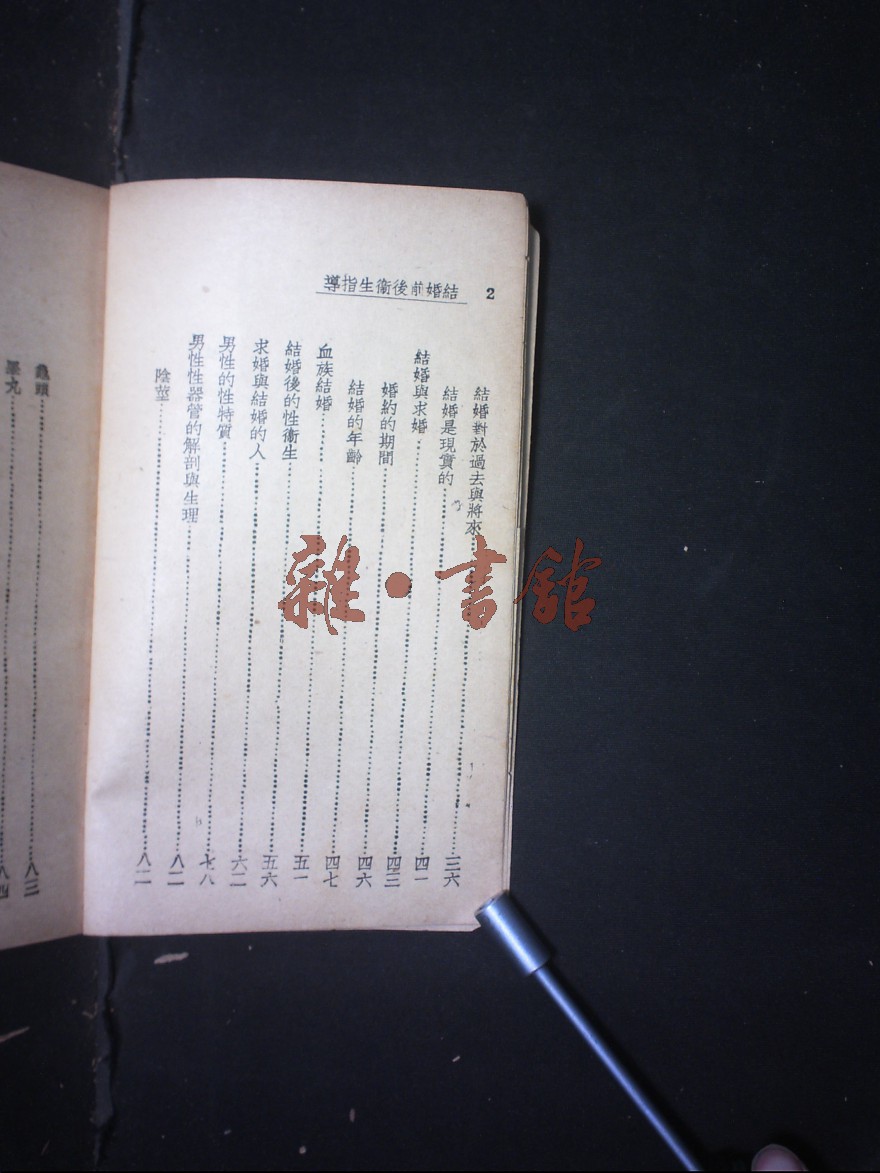 2 結婚前後衛生指導
結婚對於過去與將來……三六
結婚是現實的……四一
結婚與求婚……四三
婚約的期間……四六
結婚的年齡……四七
血族結婚……五一
結婚後的性衞生……五六
求婚與結婚的人……六二
男性的性特質……七八
男性性器管的解剖與生理……八二
陰莖……八二
龜頭……八三
睪丸……八四
雜·書館